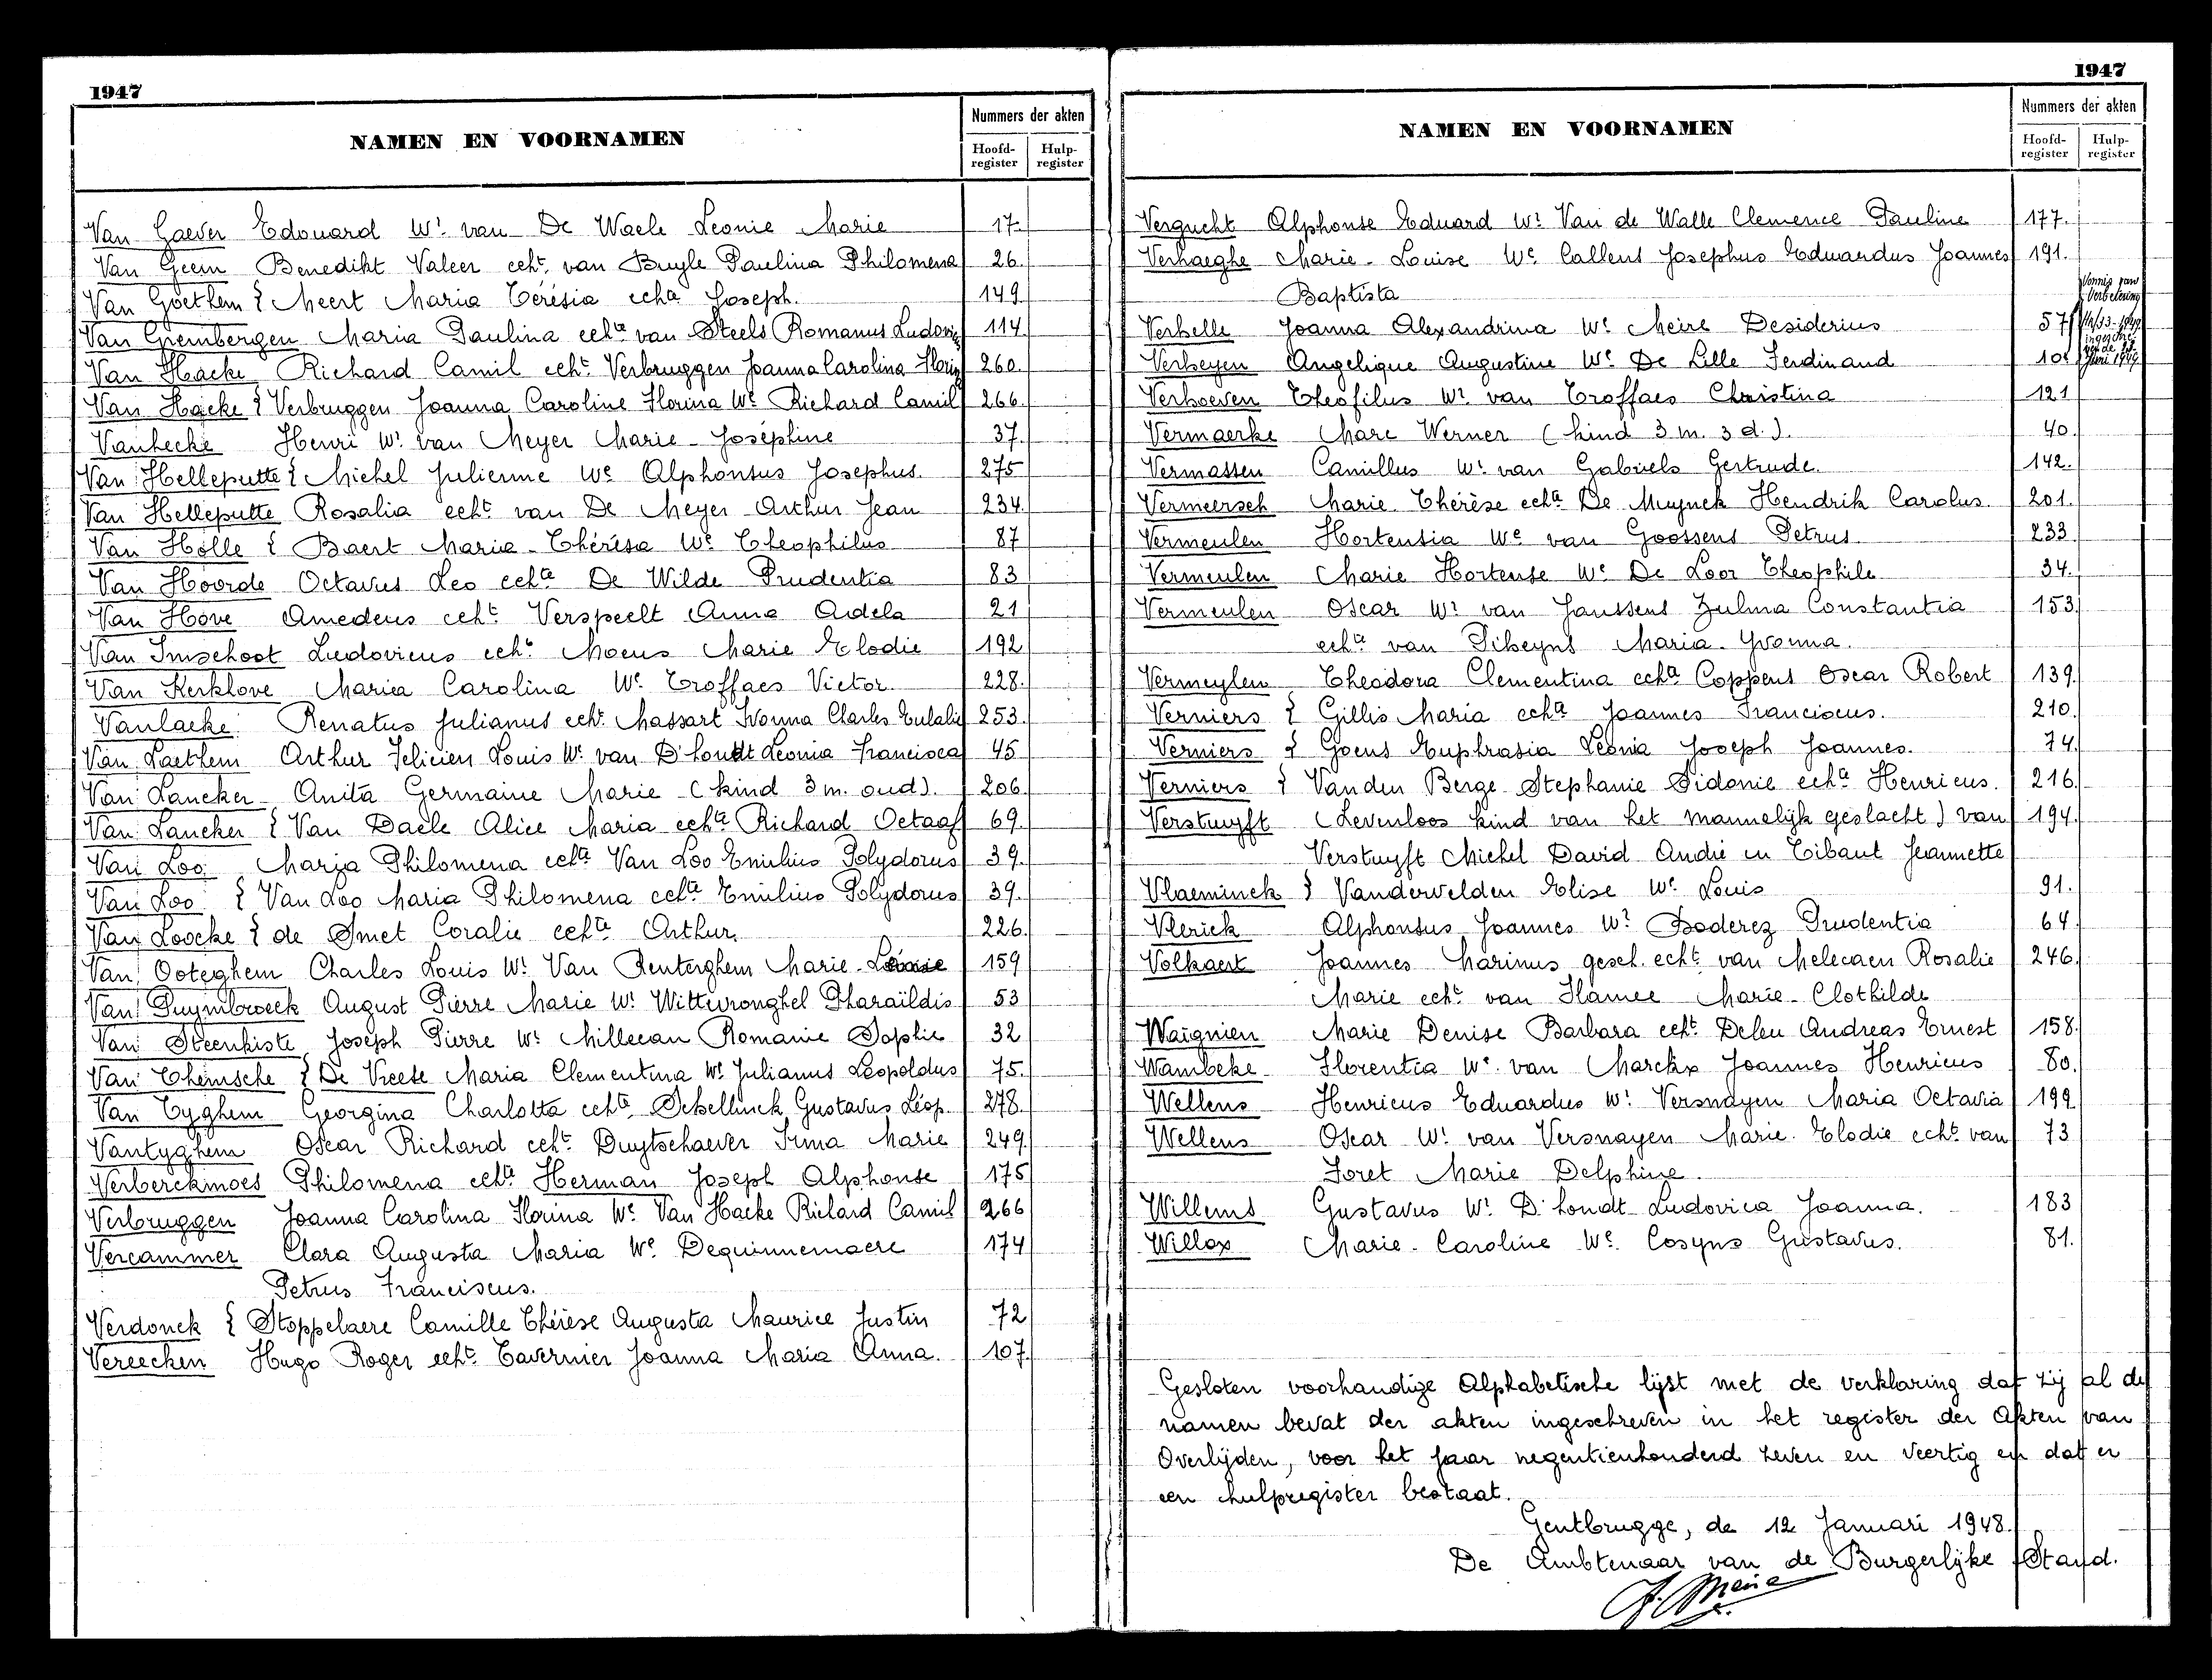 1947
NAMEN EN VOORNAMEN
Nummers der akten
Hoofd-register Hulp-register
Van Gaever Edouard Wr van De Waele Leonie Marie 17.
Van Geem Benedikt Valeer echt. van Buyle Paulina Philomena 26.
Van Goethem { Meert Maria Térésia echte Joseph. 149.
Van Grembergen Maria Paulina echte van Steels Romanus 114.
Van Hacke Richard Camil echt. Verbruggen Joanna Carolina 260.
Van Hacke { Verbruggen Joanna Caroline Florina We Richard Camil 266.
Vanhecke Henri Wr van Meyer Marie-Joséphine 37.
Van Helleputte { Michel Julienne We Alphonsus Josephus. 275
Van Helleputte Rosalia echte van De Meyer Arthur Jean 234.
Van Holle { Baert Maria-Thérésa We Theophilus 87
Van Hoorde Octavus Leo echte De Wilde Prudentia 83
Van Hove Amedeus echt. Verspeelt Anna Adela 21
Van Imschoot Ludovicus echt. Moens Marie Elodie 192
Van Kerkhove Maria Carolina We Troffaes Victor. 228.
Vanlacke Renatus Julianus echt. Massart Ivonna Charles Eulalie 253.
Van Laethem Arthur Felicien Louis Wr van D'hondt Leonia Francisca 45
Van Lancker Anita Germaine Marie (kind 3 m. oud). 206.
Van Lancker { Van Daele Alice Maria echte Richard Octaaf 69.
Van Loo Maria Philomena echte Van Loo Emilius Polydorus 39.
Van Loo { Van Loo Maria Philomena echte Emilius Polydorus 39.
Van Loocke { de Smet Coralie echte Arthur. 226.
Van Ooteghem Charles Louis Wr Van Renterghem Marie 159
Van Puymbroeck August Pierre Marie Wr Wittevronghel Pharaïldis 53
Van Steenkiste Joseph Pierre Wr Millecan Romanie Sophie 32
Van Themsche { De Vreese Maria Clementina We Julianus Léopoldus 75.
Van Tyghem Georgina Charlotta echte Schellinck Gustavus Léop. 278.
Vantyghem Oscar Richard echt. Duytschaever Irma Marie 249.
Verberckmoes Philomena echte Herman Joseph Alphonse 175
Verbruggen Joanna Carolina Florina We Van Hacke Richard Camil 266
Vercammer Clara Augusta Maria We Dequinnemaere 174
Petrus Franciscus.
Verdonck { Stoppelaere Camille Thérèse Augusta Maurice Justin 72
Vereecken Hugo Roger echt. Tavernier Joanna Maria Anna. 107.
1947
NAMEN EN VOORNAMEN
Nummers der akten
Hoofd-register Hulp-register
Vergucht Alphonse Eduard Wr Van de Walle Clemence Pauline 177.
Verhaeghe Marie-Louise We Callens Josephus Eduardus Joannes 191.
Baptista
Vonnis van Verbetering
Verhelle Joanna Alexandrina We Meire Desiderius 57
Verheyen Angelique Augustine We De Lille Ferdinand 101
Verhoeven Theofilus Wr van Troffaes Christina 121
Vermaerke Marc Werner (kind 3 m. 3 d.). 40.
Vermassen Camillus Wr van Gabriels Gertrude. 142.
Vermeersch Marie Thérèse echte De Muynck Hendrik Carolus. 201.
Vermeulen Hortensia We van Goossens Petrus 233.
Vermeulen Marie Hortense We De Loor Theophile 34.
Vermeulen Oscar Wr van Janssens Zulma Constantia 153.
echte van Sibeyns Maria-Yvonna.
Vermeylen Theodora Clementina echte Coppens Oscar Robert 139.
Verniers { Gillis Maria echte Joannes Franciscus. 210.
Verniers { Goens Euphrasia Leonia Joseph Joannes. 74.
Verniers { Vanden Berge Stephanie Sidonie echte Henricus. 216.
Verstuyft (Levenloos kind van het mannelijk geslacht) van 194.
Verstuyft Michel David André en Tibaut Jeannette
Vlaeminck { Vandervelden Elise We Louis 91.
Vlerick Alphonsus Joannes Wr Boderez Prudentia 64
Volkaert Joannes Marinus gesch. echt. van Melecaen Rosalie 246.
Marie echt. van Flamee Marie-Clothilde
Waignien Marie Denise Barbara echt. Deleu Andreas Ernest 158.
Wambeke Florentia We van Marckx Joannes Henricus 80.
Wellens Henricus Eduardus Wr Versnayen Maria Octavia 199
Wellens Oscar Wr van Versnayen Marie Elodie echt. van 73
Foret Marie Delphine.
Willems Gustavus Wr D'hondt Ludovica Joanna. 183
Willox Marie-Caroline We Cosyns Gustavus. 81.
Gesloten voorhandige Alphabetische lijst met de verklaring dat zij al de
namen bevat der akten ingeschreven in het register der Akten van
Overlijden, voor het jaar negentienhonderd zeven en veertig en dat er
een hulpregister bestaat.
Gentbrugge, de 12 Januari 1948.
De Ambtenaar van de Burgerlijke Stand.